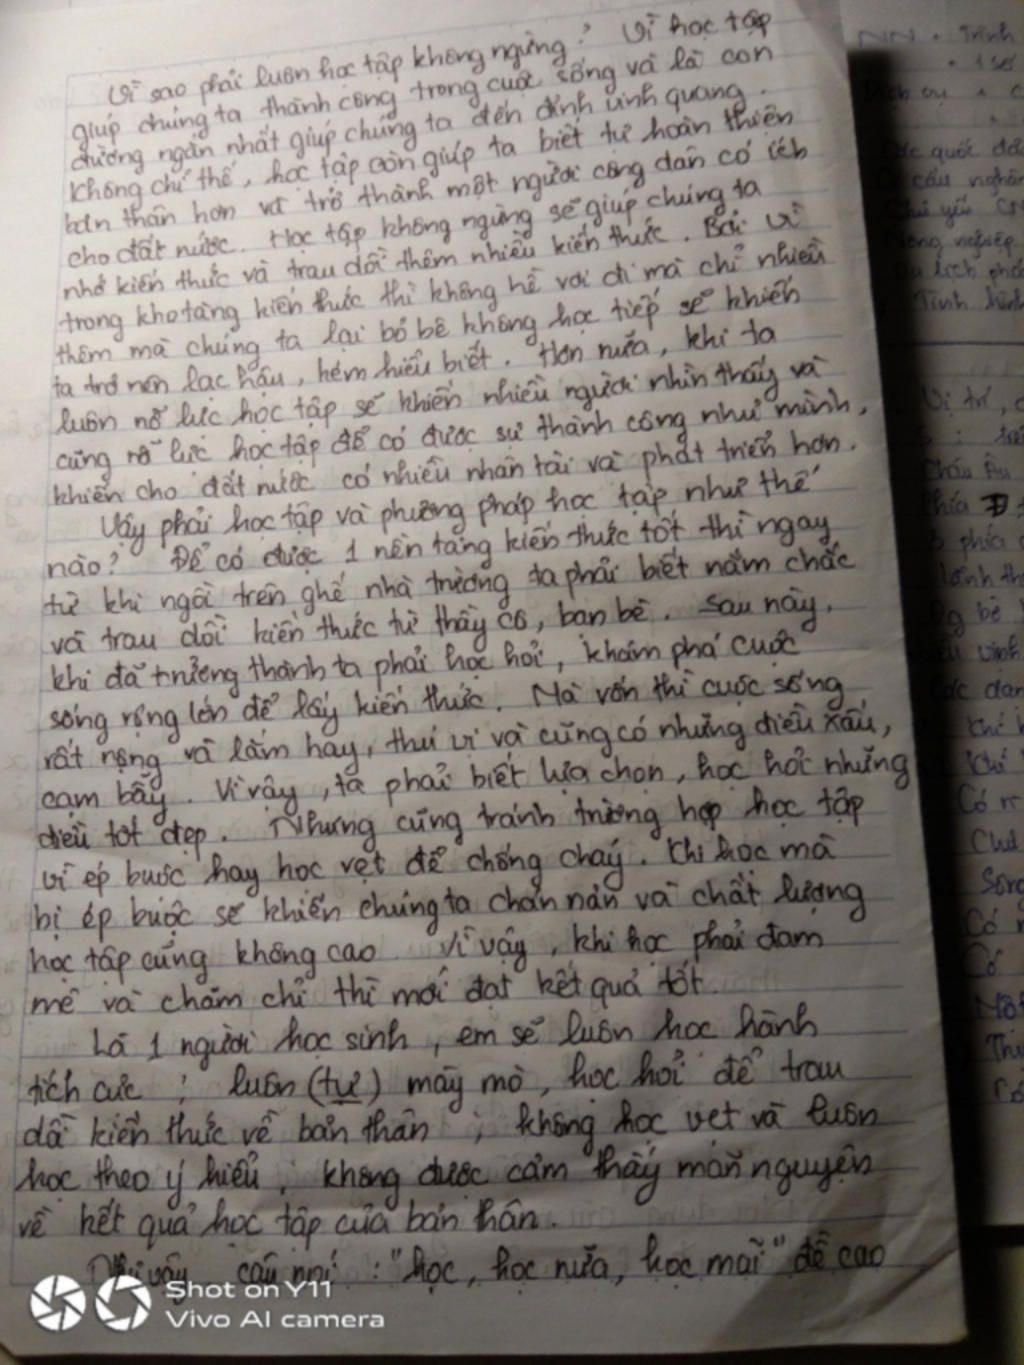 Vì sao phải luôn học tập không ngừng? Vì học tập
giúp chúng ta thành công trong cuộc sống và là con
đường ngắn nhất giúp chúng ta đến đỉnh vinh quang.
Không chỉ thế, học tập còn giúp ta biết tự hoàn thiện
bản thân hơn và trở thành một người công dân có ích
cho đất nước. Học tập không ngừng sẽ giúp chúng ta
nhớ kiến thức và trau dồi thêm nhiều kiến thức. Bởi vì
trong kho tàng kiến thức thì không hề vơi đi mà chỉ nhiều
thêm mà chúng ta lại bỏ bê không học tiếp sẽ khiến
ta trở nên lạc hậu, kém hiểu biết. Hơn nữa, khi ta
luôn nỗ lực học tập sẽ khiến nhiều người nhìn thấy và
cũng nỗ lực học tập để có được sự thành công như mình,
khiến cho đất nước có nhiều nhân tài và phát triển hơn.
Vậy phải học tập và phương pháp học tập như thế
nào? Để có được 1 nền tảng kiến thức tốt thì ngay
từ khi ngồi trên ghế nhà trường ta phải biết nắm chắc
và trau dồi kiến thức từ thầy cô, bạn bè. Sau này,
khi đã trưởng thành ta phải học hỏi, khám phá cuộc
sống rộng lớn để lấy kiến thức. Mà vốn thì cuộc sống
rất rộng và lắm hay, thú vị và cũng có những điều xấu,
cạm bẫy. Vì vậy, ta phải biết lựa chọn, học hỏi những
điều tốt đẹp. Nhưng cũng tránh trường hợp học tập
vì ép buộc hay học vẹt để chống cháy. Khi học mà
bị ép buộc sẽ khiến chúng ta chán nản và chất lượng
học tập cũng không cao. Vì vậy, khi học phải đam
mê và chăm chỉ thì mới đạt kết quả tốt.
Là 1 người học sinh, em sẽ luôn học hành
tích cực; luôn (tự) mày mò, học hỏi để trau
dồi kiến thức về bản thân; không học vẹt và luôn
học theo ý hiểu; không được cảm thấy mãn nguyện
về kết quả học tập của bản thân.
Như vậy câu nói: "học, học nữa, học mãi" đề cao
Shot on Y11
Vivo AI camera
NN . Trình
Dịch vụ
Các quốc
Cơ cấu
Chủ yếu CN
Nông nghiệp
Du lịch
Tình hình
Vị trí,
Châu Âu
Phía Đ
Có
Có
Có